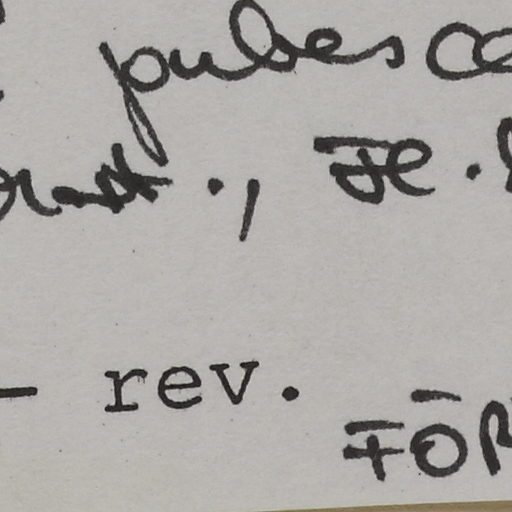 pubesce
., Fl.
- rev.
FŌR